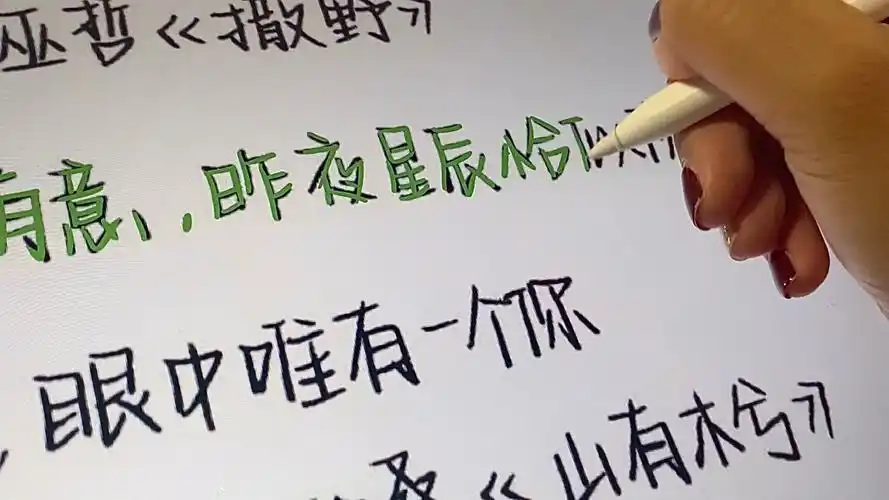 巫哲《撒野》
有意,,昨夜星辰恰似
眼中唯有一个你
《山有木兮》